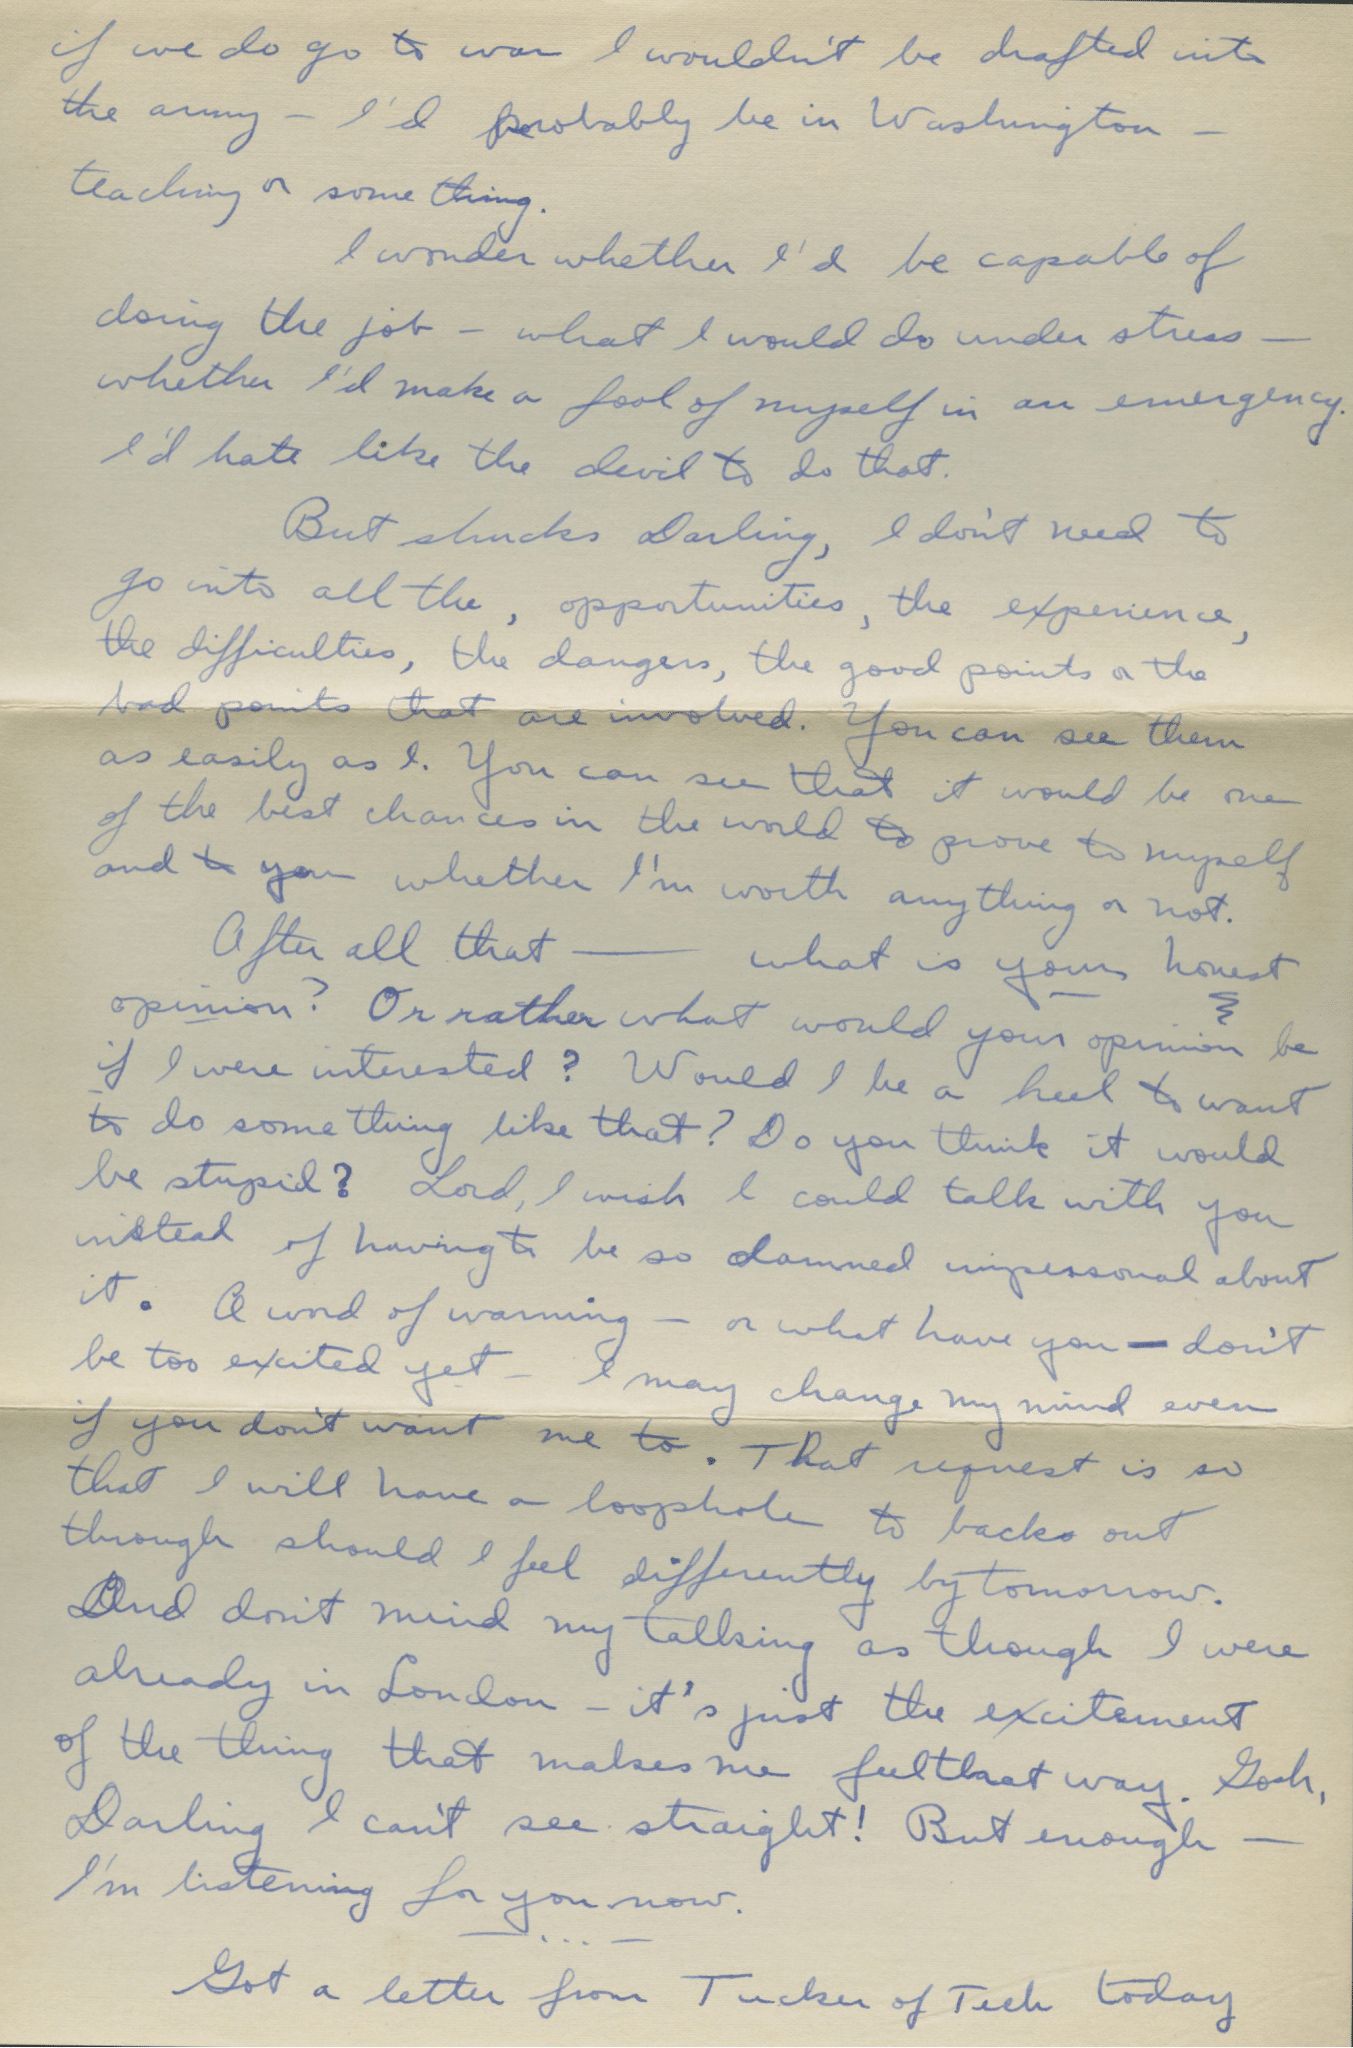 if we do go to war I wouldn't be drafted into
the army — I'd probably be in Washington —
teaching or something.
I wonder whether I'd be capable of
doing the job — what I would do under stress —
whether I'd make a fool of myself in an emergency.
I'd hate like the devil to do that.
But shucks Darling, I don't need to
go into all the, opportunities, the experience,
the difficulties, the dangers, the good points or the
bad points that are involved. You can see them
as easily as I. You can see that it would be one
of the best chances in the world to prove to myself
and to you whether I'm worth anything or not.
After all that —— what is your honest
opinion? Or rather what would your opinion be
if I were interested? Would I be a heel to want
to do something like that? Do you think it would
be stupid? Lord, I wish I could talk with you
instead of having to be so damned impersonal about
it. A word of warning — or what have you — don't
be too excited yet — I may change my mind even
if you don't want me to. That request is so
that I will have a loophole to back out
through should I feel differently by tomorrow.
And don't mind my talking as though I were
already in London — it's just the excitement
of the thing that makes me feel that way. Gosh,
Darling I can't see straight! But enough —
I'm listening for you now.
— ... —
Got a letter from Tucker of Tech today